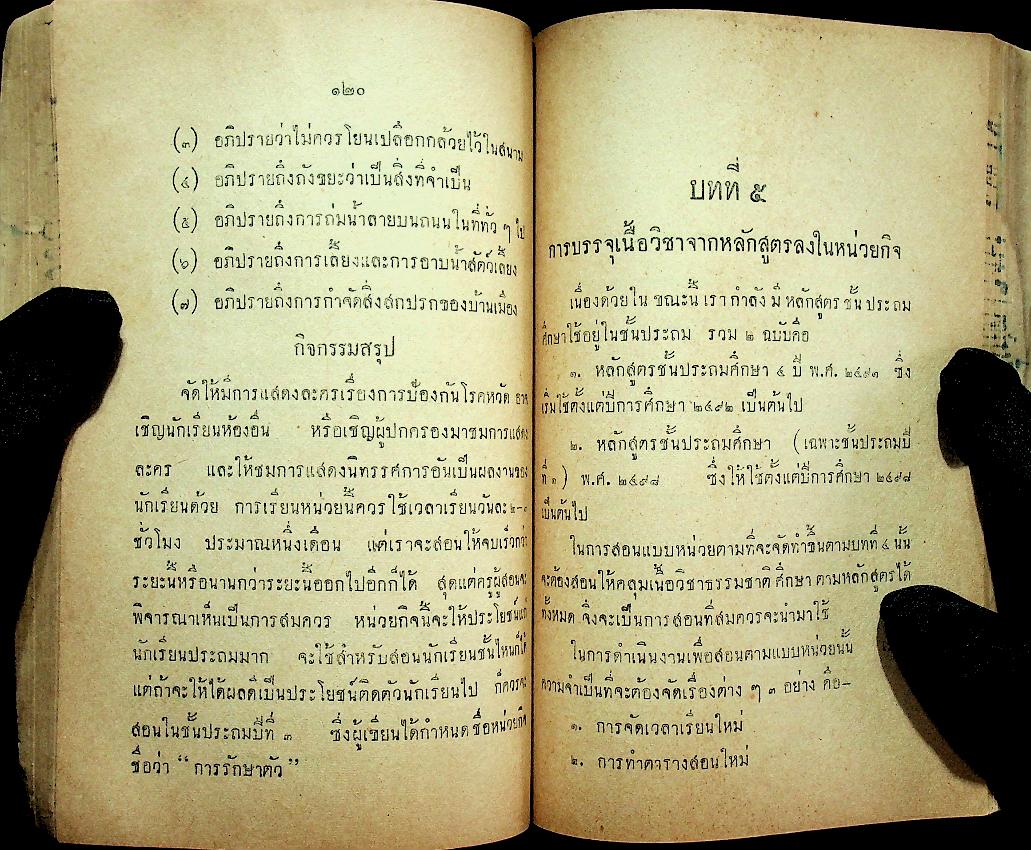 ๑๒๐
(๓) อภิปรายว่าไม่ควรโยนเปลือกกล้วยไว้ในสนาม
(๔) อภิปรายถึงถังขยะว่าเป็นสิ่งที่จำเป็น
(๕) อภิปรายถึงการถ่มน้ำลายบนถนนในที่ทั่ว ๆ ไป
(๖) อภิปรายถึงการเลี้ยงและการอาบน้ำสัตว์เลี้ยง
(๗) อภิปรายถึงการกำจัดสิ่งสกปรกของบ้านเมือง
กิจกรรมสรุป
จัดให้มีการแสดงละครเรื่องการป้องกันโรคหวัด
เชิญนักเรียนห้องอื่น หรือเชิญผู้ปกครองมาชมการแสดง
ละคร และให้ชมการแสดงนิทรรศการอันเป็นผลงานของ
นักเรียนด้วย การเรียนหน่วยนี้ควรใช้เวลาเรียนวันละ ๒-๓
ชั่วโมง ประมาณหนึ่งเดือน แต่เราจะสอนให้จบเร็วกว่า
ระยะนี้หรือนานกว่าระยะนี้ออกไปอีกก็ได้ สุดแต่ครูผู้สอนจะ
พิจารณาเห็นเป็นการสมควร หน่วยกิจนี้จะให้ประโยชน์แก่
นักเรียนประถมมาก จะใช้สำหรับสอนนักเรียนชั้นไหนก็ได้
แต่ถ้าจะให้ได้ผลดีเป็นประโยชน์ติดตัวนักเรียนไป ก็ควรจะ
สอนในชั้นประถมปีที่ ๓ ซึ่งผู้เขียนได้กำหนดชื่อหน่วยกิจ
ชื่อว่า “การรักษาตัว”
บทที่ ๕
การบรรจุเนื้อวิชาจากหลักสูตรลงในหน่วยกิจ
เนื่องด้วยใน ขณะนี้ เรา กำลัง มี หลักสูตร ชั้น ประถม
ศึกษาใช้อยู่ในชั้นประถม รวม ๒ ฉบับคือ
๑. หลักสูตรชั้นประถมศึกษา ๔ ปี พ.ศ. ๒๔๙๑ ซึ่ง
เริ่มใช้ตั้งแต่ปีการศึกษา ๒๔๙๒ เป็นต้นไป
๒. หลักสูตรชั้นประถมศึกษา (เฉพาะชั้นประถมปี
ที่ ๑) พ.ศ. ๒๔๙๘ ซึ่งให้ใช้ตั้งแต่ปีการศึกษา ๒๔๙๘
เป็นต้นไป
ในการสอนแบบหน่วยตามที่จะจัดทำขึ้นตามบทที่ ๔ นั้น
จะต้องสอนให้คลุมเนื้อวิชาธรรมชาติศึกษา ตามหลักสูตรได้
ทั้งหมด จึงจะเป็นการสอนที่สมควรจะนำมาใช้
ในการดำเนินงานเพื่อสอนตามแบบหน่วยนั้น
ความจำเป็นที่จะต้องจัดเรื่องต่าง ๆ ๓ อย่าง คือ-
๑. การจัดเวลาเรียนใหม่
๒. การทำตารางสอนใหม่